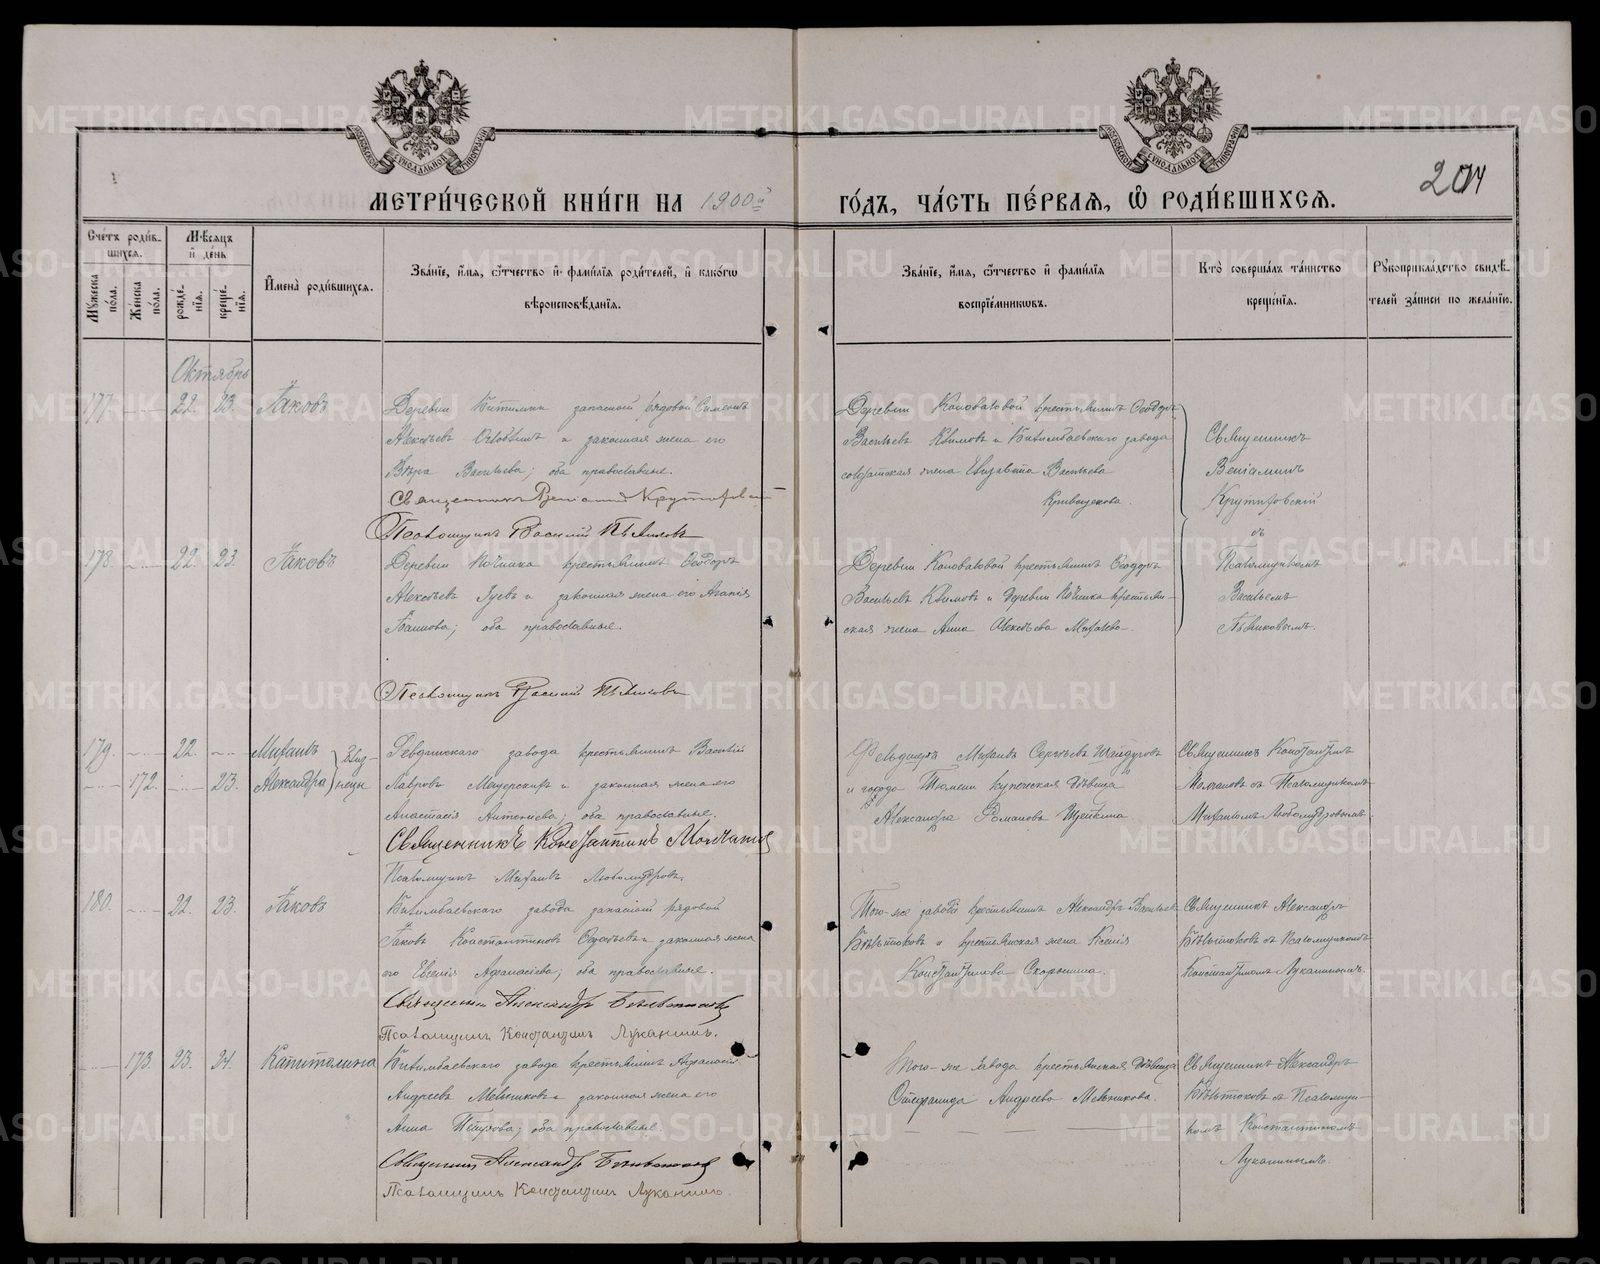 МЕТРИ́ЧЕСКОЙ КНИ́ГИ НА 1900й ГО́ДЪ, ЧА́СТЬ ПЕ́РВАЯ, Ѡ РОДИ́ВШИХСЯ.
204
Сче́тъ роди́в-
шихся.
Му́жеска по́ла.
Же́нска по́ла.
Мѣ́сяцъ
и де́нь
рожде́-
нія.
креще́-
нія.
Имена̀ роди́вшихся.
Зва́ніе, и́мя, о́тчество и фами́лія роди́телей, и како́гѡ
вѣроисповѣ́данія.
Зва́ніе, и́мя, о́тчество и фами́лія
воспріе́мниковъ.
Кто̀ соверша́лъ та́инство
креще́нія.
Рукоприкла́дство свидѣ́-
телей за́писи по жела́нію.
Октябрь
177. 22. 23. Іаковъ
Деревни запасной рядовой Симеонъ
Алексѣевъ и законная жена его
Вѣра Васильева; оба православные.
Священникъ Веніаминъ Крутиховскій
Псаломщикъ Василій
Деревни Коноваловой крестьянинъ Ѳеодоръ
Васильевъ и Билимбаевскаго завода
солдатская жена Елизавета Васильева
Кривощекова.
Священникъ
Веніаминъ
Крутиховскій
съ
Псаломщикомъ
Васильемъ
178. 22. 23. Іаковъ
Деревни крестьянинъ Ѳеодоръ
Алексѣевъ и законная жена его Агапія
оба православные.
Псаломщикъ Василій
Деревни Коноваловой крестьянинъ Ѳеодоръ
Васильевъ и деревни крестьян-
ская жена Анна Алексѣева
179. 22. Михаилъ
172. 23. Александра
Близ-
нецы
Ревдинскаго завода крестьянинъ Василій
Лавровъ Мещерскихъ и законная жена его
Анастасія Антоніева; оба православные.
Священникъ Константинъ Молчановъ
Псаломщикъ Михаилъ Любомудровъ.
Фельдшеръ Михаилъ Сергѣевъ
и города Тюмени купеческая дѣвица
Александра Романова
Священникъ Константинъ
Молчановъ съ Псаломщикомъ
Михаиломъ Любомудровымъ.
180. 22. 23. Іаковъ
Билимбаевскаго завода запасной рядовой
Іаковъ Константиновъ и законная жена
его Евгенія Афанасіева; оба православные.
Священникъ Александръ Бѣльтюковъ
Псаломщикъ Константинъ Луканинъ.
Того-же завода крестьянинъ Александръ Васильевъ
и крестьянская жена Ксенія
Константинова Скорынина.
Священникъ Александръ
Бѣльтюковъ съ Псаломщикомъ
Константиномъ Луканинымъ.
173. 23. 24. Капитолина
Билимбаевскаго завода крестьянинъ Афанасій
Андреевъ Мельниковъ и законная жена его
Анна Петрова; оба православные.
Священникъ Александръ Бѣльтюковъ
Псаломщикъ Константинъ Луканинъ.
Того-же завода крестьянская дѣвица
Стефанида Андреева Мельникова.
Священникъ Александръ
Бѣльтюковъ съ Псаломщи-
комъ Константиномъ
Луканинымъ.